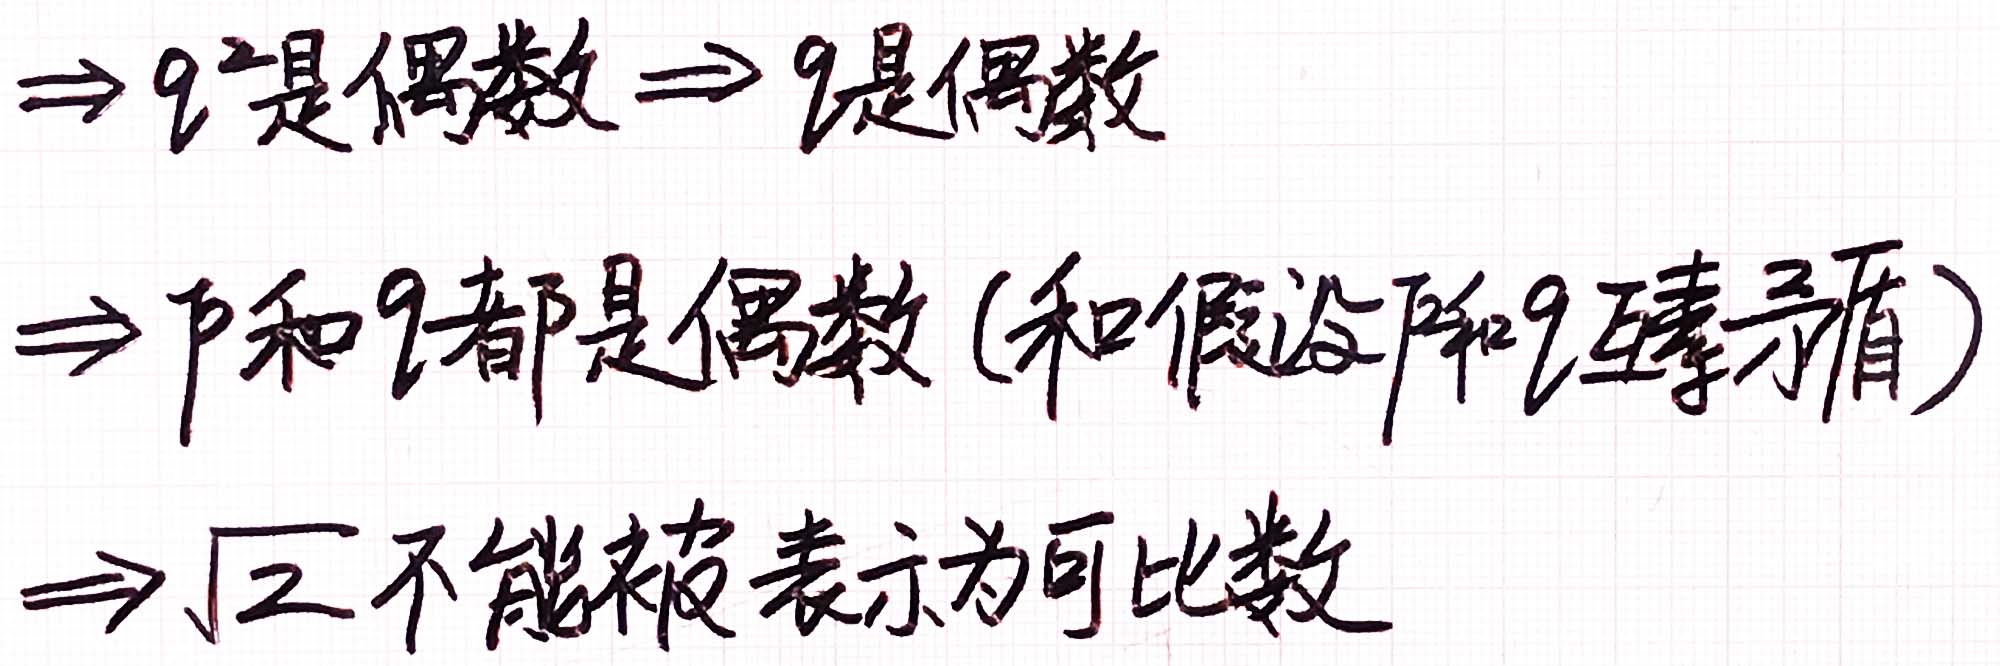 ⇒ q²是偶数 ⇒ q是偶数
⇒ p和q都是偶数 (和假设p和q互素矛盾)
⇒ √2 不能被表示为可比数